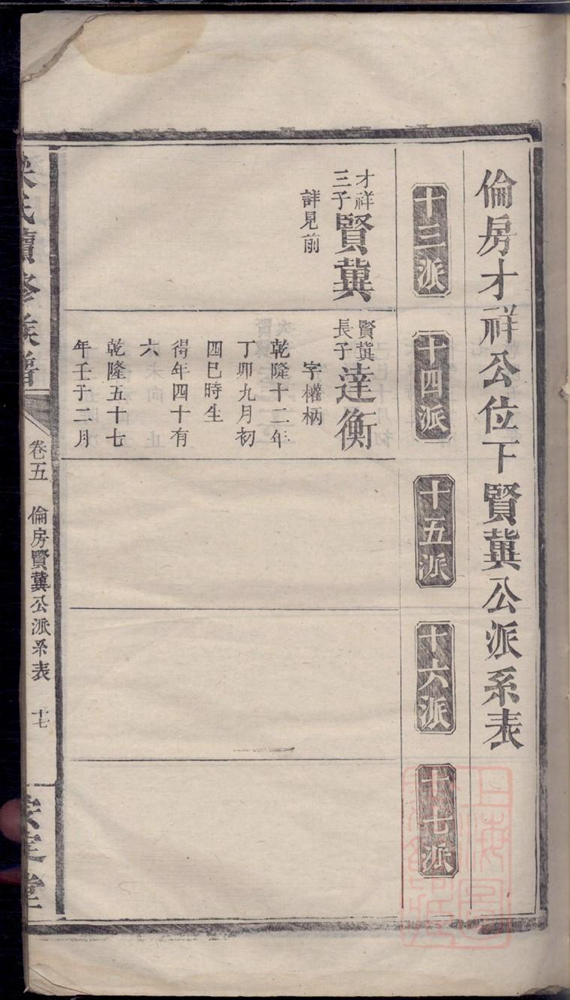 倫房才祥公位下賢冀公派系表
十三派
十四派
十五派
十六派
十七派
才祥
三子
賢冀
詳見前
賢冀
長子
達衡
字權柄
乾隆十二年
丁卯九月初
四巳時生
得年四十有
六
乾隆五十七
年壬子二月
氏續修族譜
卷五
倫房賢冀公派系表
十七
堂
上海